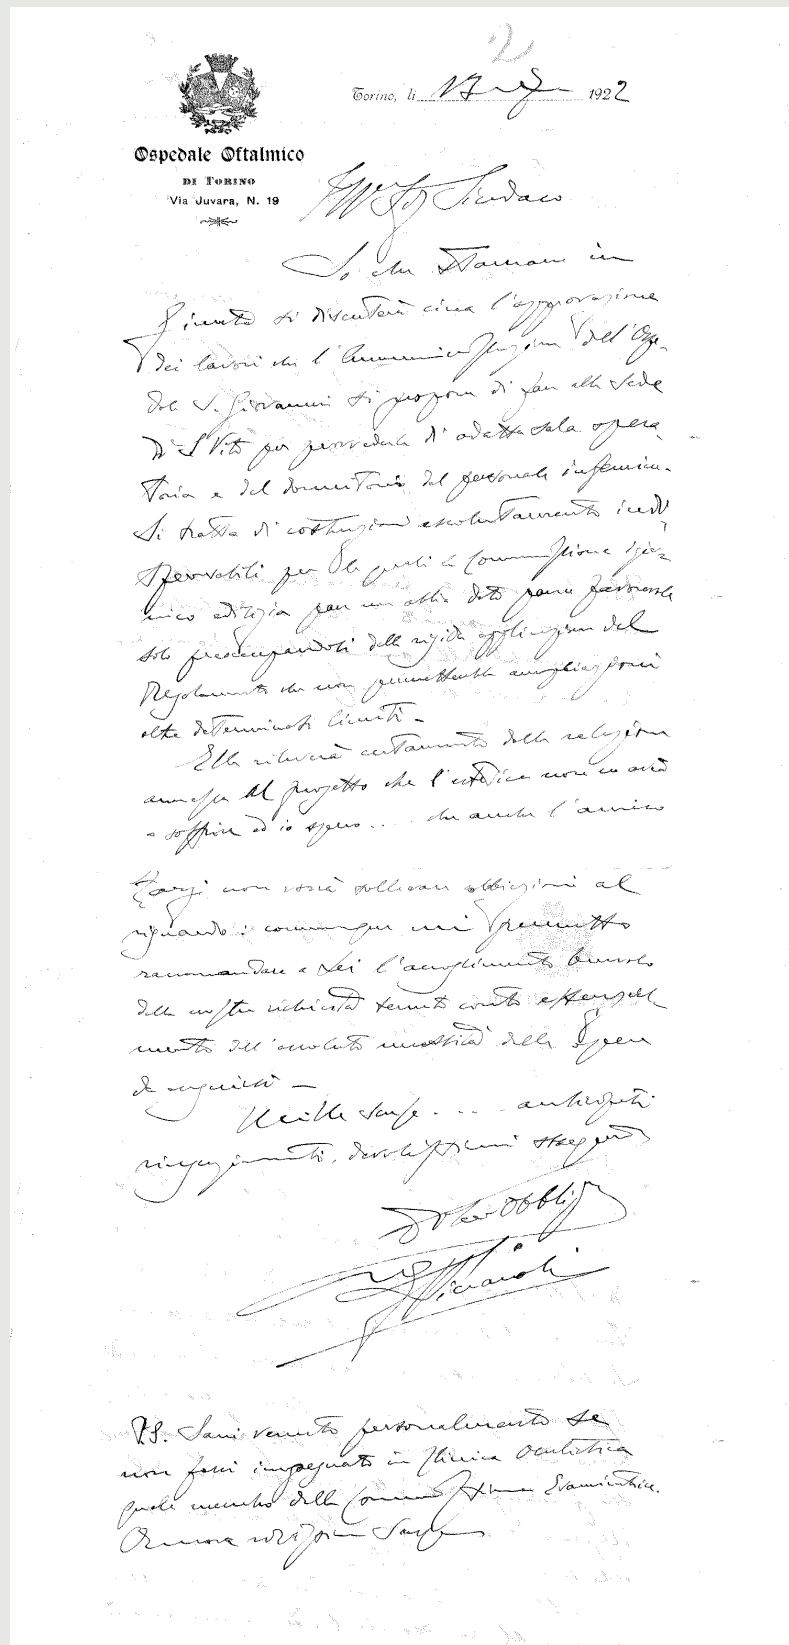 2
Torino, li 1922
Ospedale Oftalmico
DI TORINO
Via Juvara, N. 19
Ill Sig Sindaco
So che stamani in
Giunta si discuterà circa l'approvazione
dei lavori che l'Amministrazione dell'Ospe-
dale S. Giovanni si propone di fare alla Sede
di S Vito per provvederla di adatta sala opera-
toria e del dormitorio del personale
Si tratta di costruzioni assolutamente indi
spensabili per le quali la Commissione igie-
nico edilizia pare non abbia dato parere favorevole
solo preoccupandosi della rigida applicazione del
Regolamento che non permetterebbe ampliazioni
oltre determinati limiti -
Ella rileverà certamente dalla relazione
annessa al progetto che l'estetica non avrà
a soffrire ed io spero .... che anche l'amico
non vorrà sollevare obbiezioni al
riguardo: comunque mi permetto
raccomandare a Lei l'accoglimento benevolo
della nostra richiesta tenuto conto essenzial
mente dell'assoluta necessità delle opere
da eseguirsi -
Mille scuse .... anticipati
ringraziamenti, devotissimi ossequi
Obbligo
P.S. Sarei venuto personalmente se
non fossi impegnato in Clinica Oculistica
quale membro della Commissione Esaminatrice.
Ancora scuse